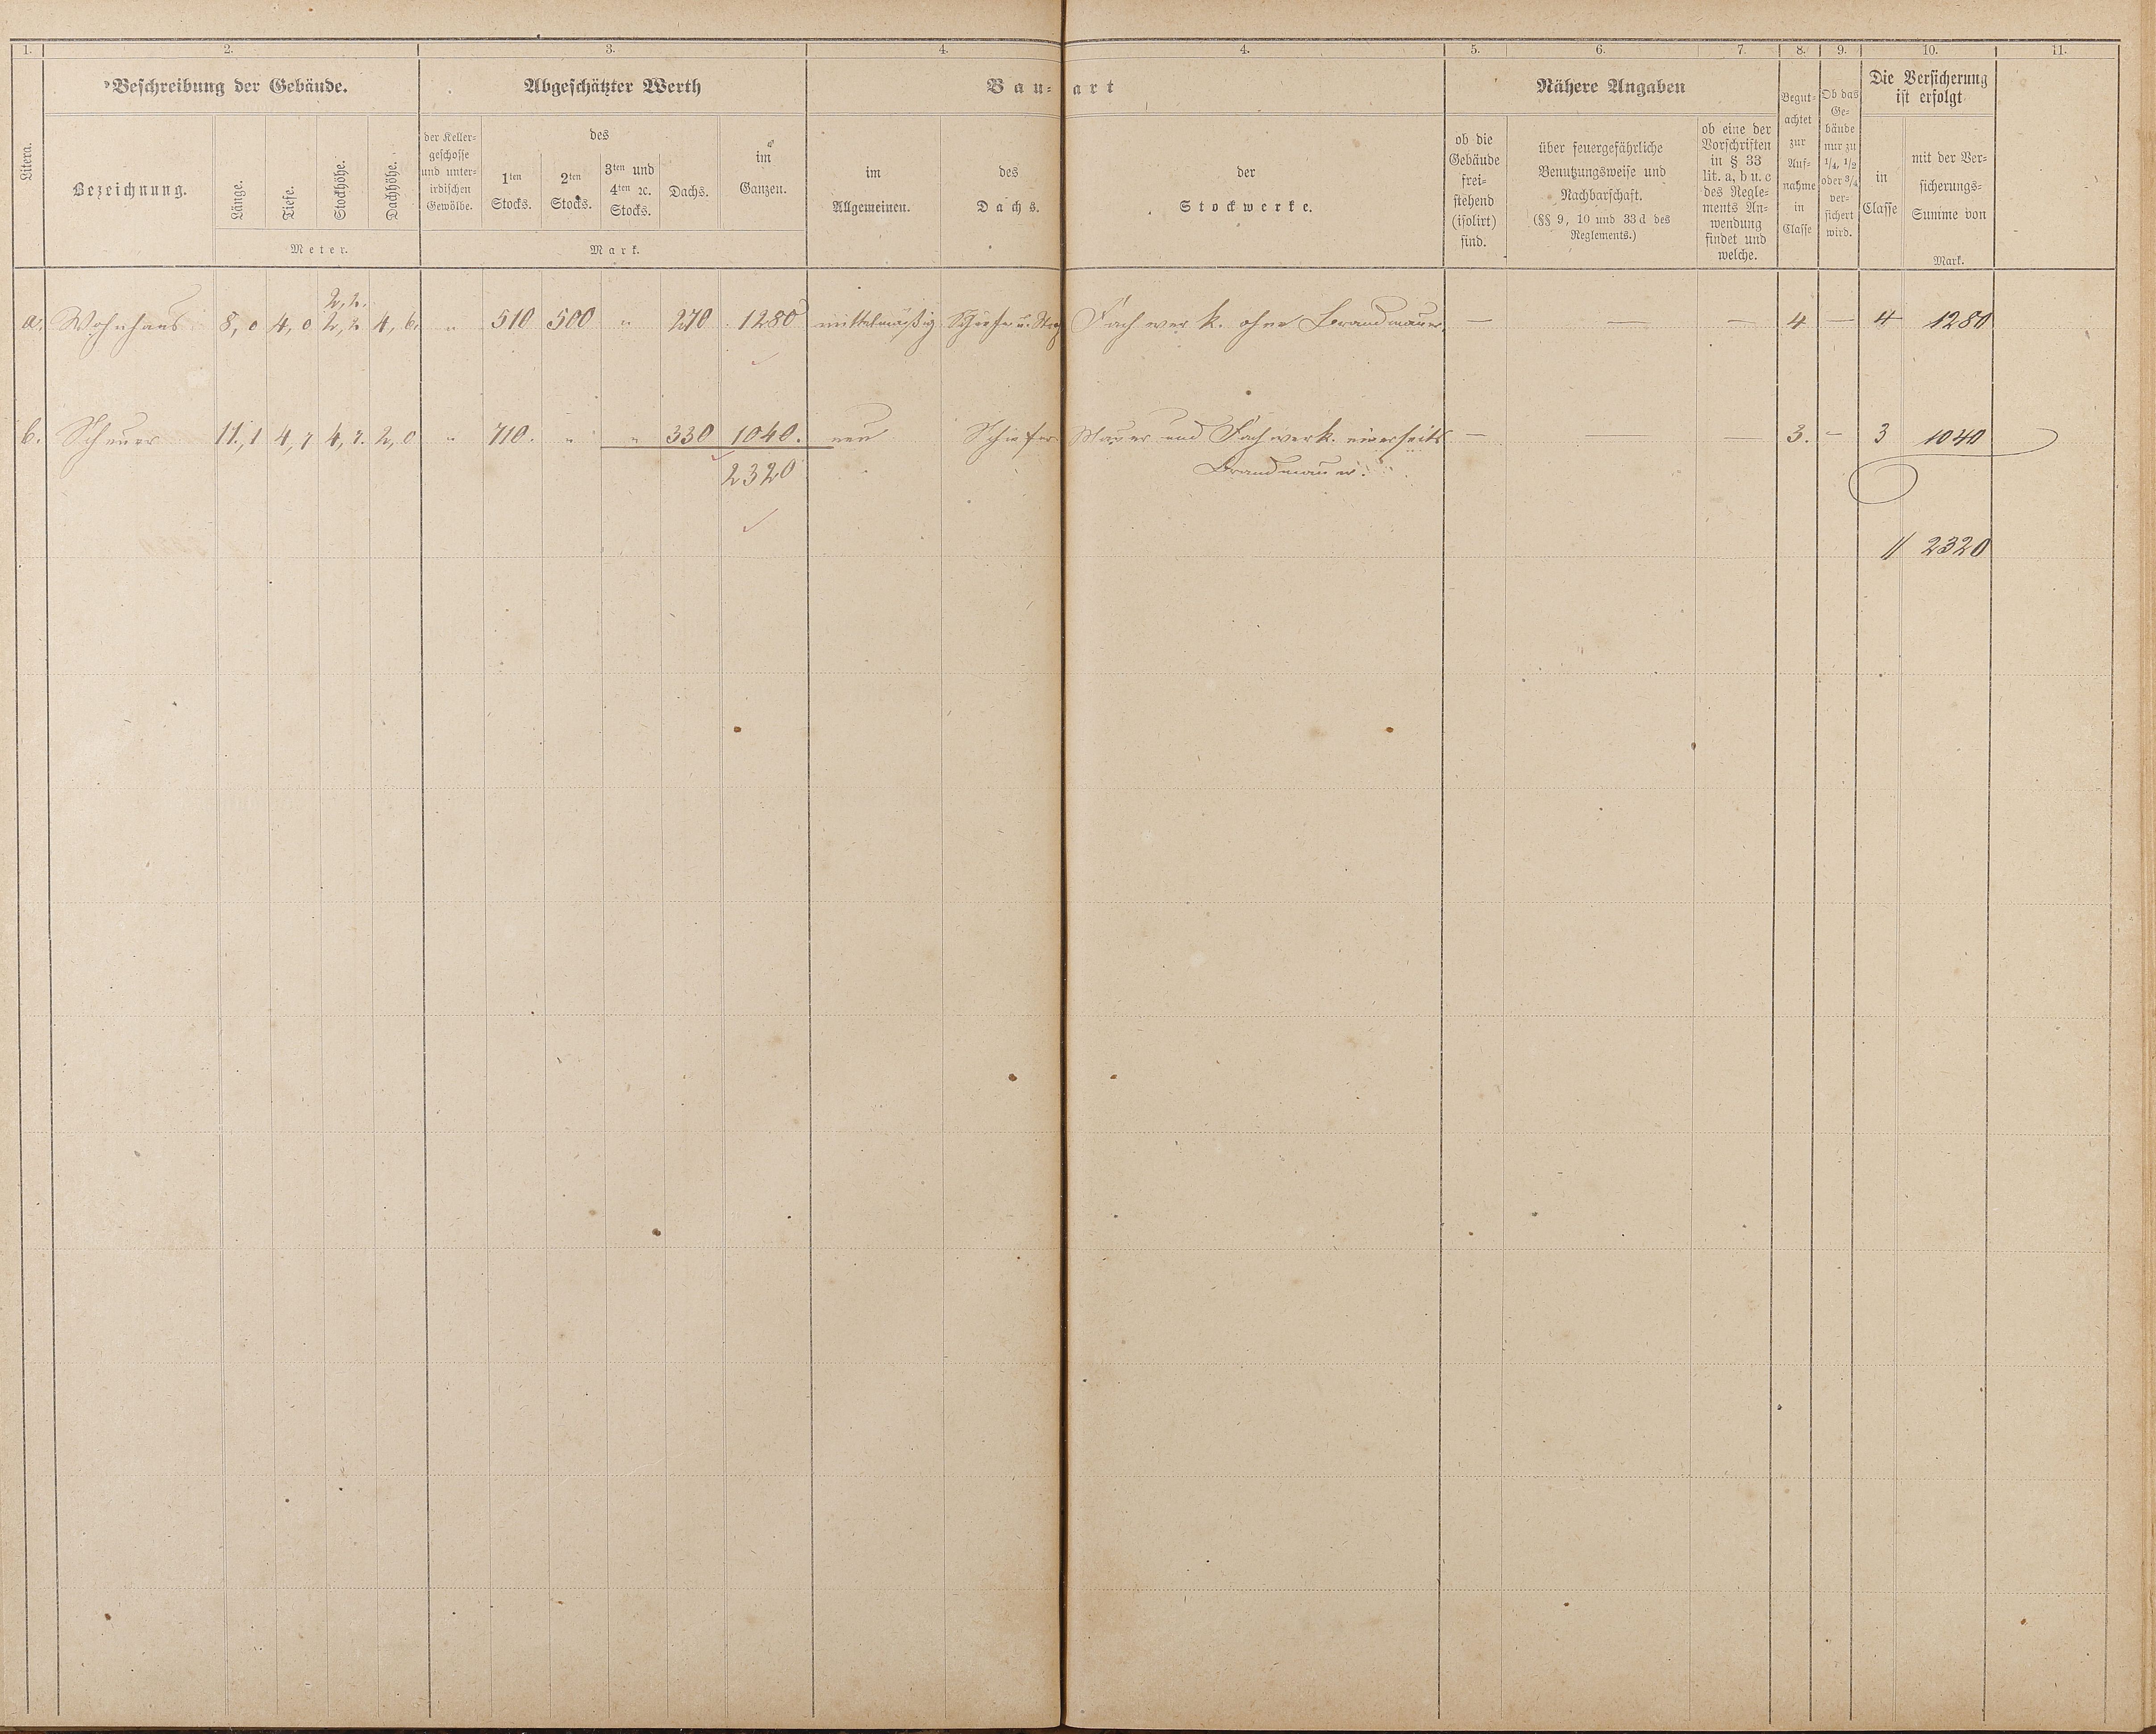 1. 2. 3. 4. 4. 5. 6. 7. 8. 9. 10. 11.
Litera.
Beschreibung der Gebäude.
Bezeichnung.
Länge.
Tiefe.
Stockhöhe.
Dachhöhe.
Meter.
Abgeschätzter Werth
der Keller-
geschosse
und unter-
irdischen
Gewölbe.
des
1ten
Stocks.
2ten
Stocks.
3ten und
4ten ꝛc.
Stocks.
Dachs.
im
Ganzen.
Mark.
Bau-art
im
Allgemeinen.
des
Dachs.
der
Stockwerke.
Nähere Angaben
ob die
Gebäude
frei-
stehend
(isolirt)
sind.
über feuergefährliche
Benutzungsweise und
Nachbarschaft.
(§§ 9, 10 und 33 d des
Reglements.)
ob eine der
Vorschriften
in § 33
lit. a, b u. c
des Regle-
ments An-
wendung
findet und
welche.
Begut-
achtet
zur
Auf-
nahme
in
Classe
Ob das
Ge-
bäude
nur zu
1/4, 1/2
oder 3/4
ver-
sichert
wird.
Die Versicherung
ist erfolgt
in
Classe
mit der Ver-
sicherungs-
Summe von
Mark.
2,2.
a. Wohnhaus 8,0 4,0 2,2 4,6. " 510 500 " 270 1280 mittelmäßig Schiefer u. Fachwerk. ohne Brandmauer. — — — 4 — 4 1280
b. Scheuer 11,1 4,7 4,2. 2,0 " 710. " " 330 1040. neu Schiefer Mauer und Fachwerk. einerseits — — — 3. - 3 1040
2320 Brandmauer.
// 2320